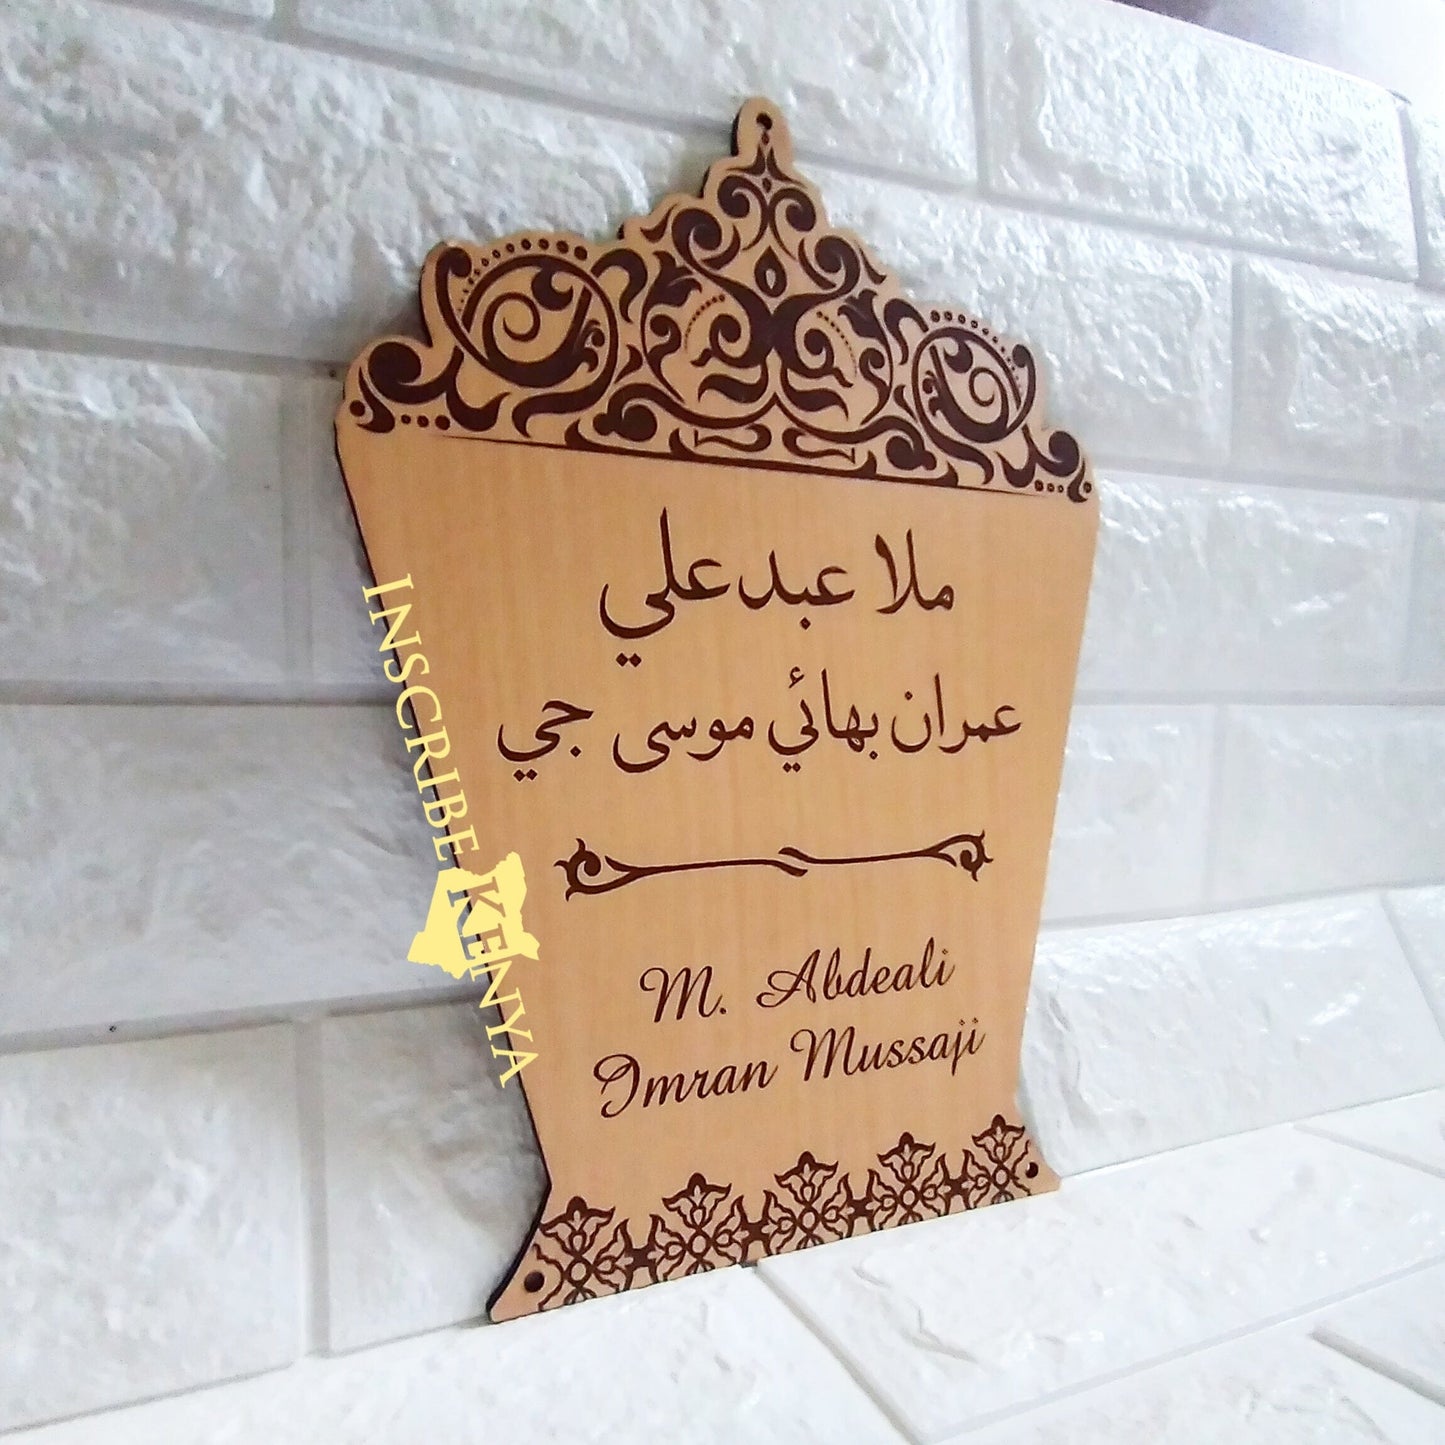 ملا عبدعلي
عمران بهائي موسى جي
M. Abdeali
Imran Mussaji
INSCRIBE KENYA